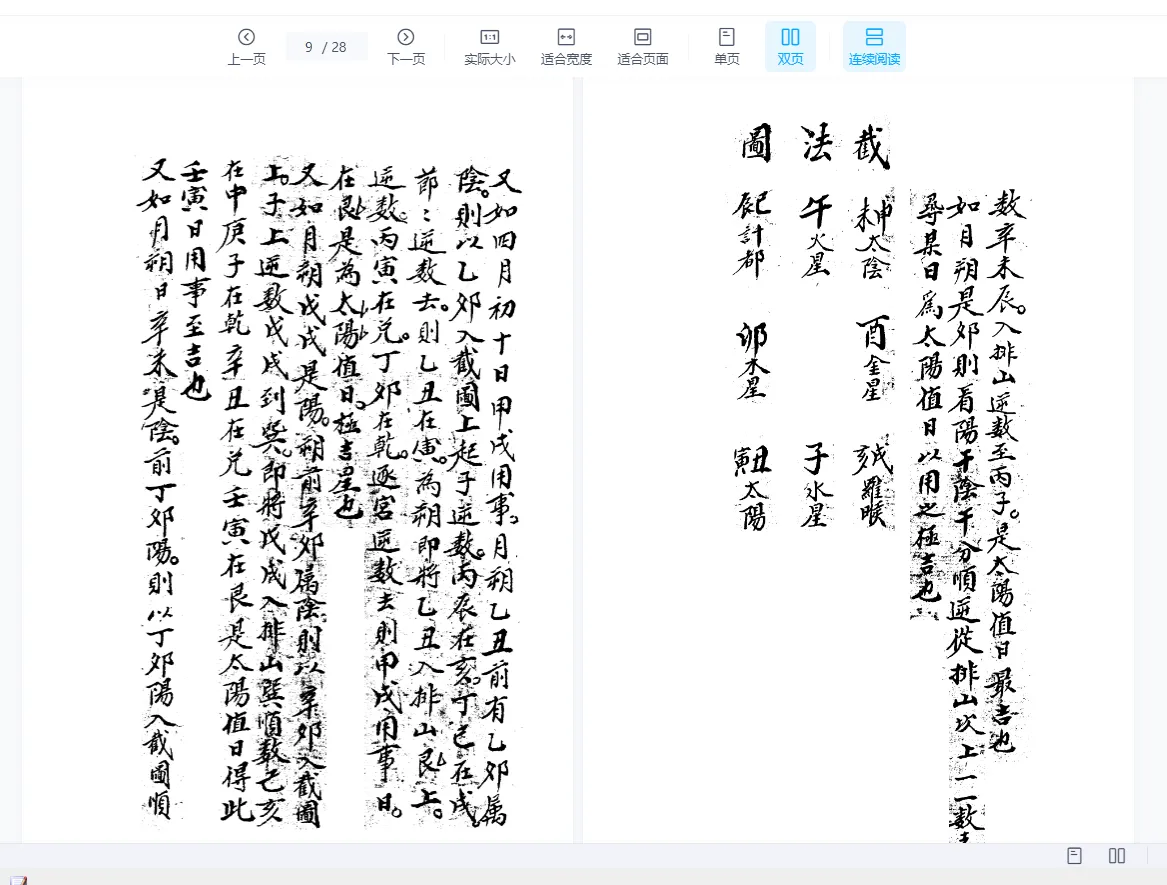 上一页
9 / 28
下一页
实际大小
适合宽度
适合页面
单页
双页
连续阅读
又如四月初十日甲戌用事。月朔乙丑前有乙夘属
陰。則以乙夘入截圖上起子逆数。丙辰在亥。丁巳在戌。
節：逆数去。則乙丑在寅。為朔即將乙丑入排山艮上。
逆数丙寅在兑。丁夘在乾。逐宮逆数去則甲戌用事日。
在艮是為太陽值日。極吉星也
又如月朔戊戌是陽。朔前辛夘属陰。則以辛夘入截圖
上。子上逆数戊戌到巽。即將戊戌入排山巽順数己亥
在中庚子在乾辛丑在兑壬寅在艮是太陽值日得此
壬寅日用事至吉也
又如月朔日辛未是陰。前丁夘陽。則以丁夘陽入截圖順
数辛未辰。入排山逆数至丙子。是太陽值日最吉也
如月朔是夘則看陽干陰干分順逆從排山次上一一数
尋某日為太陽值日以用之極吉也
截 申未太陰 酉金星 戌亥羅睺
法 午火星 子水星
圖 巳辰計都 卯木星 丑寅太陽